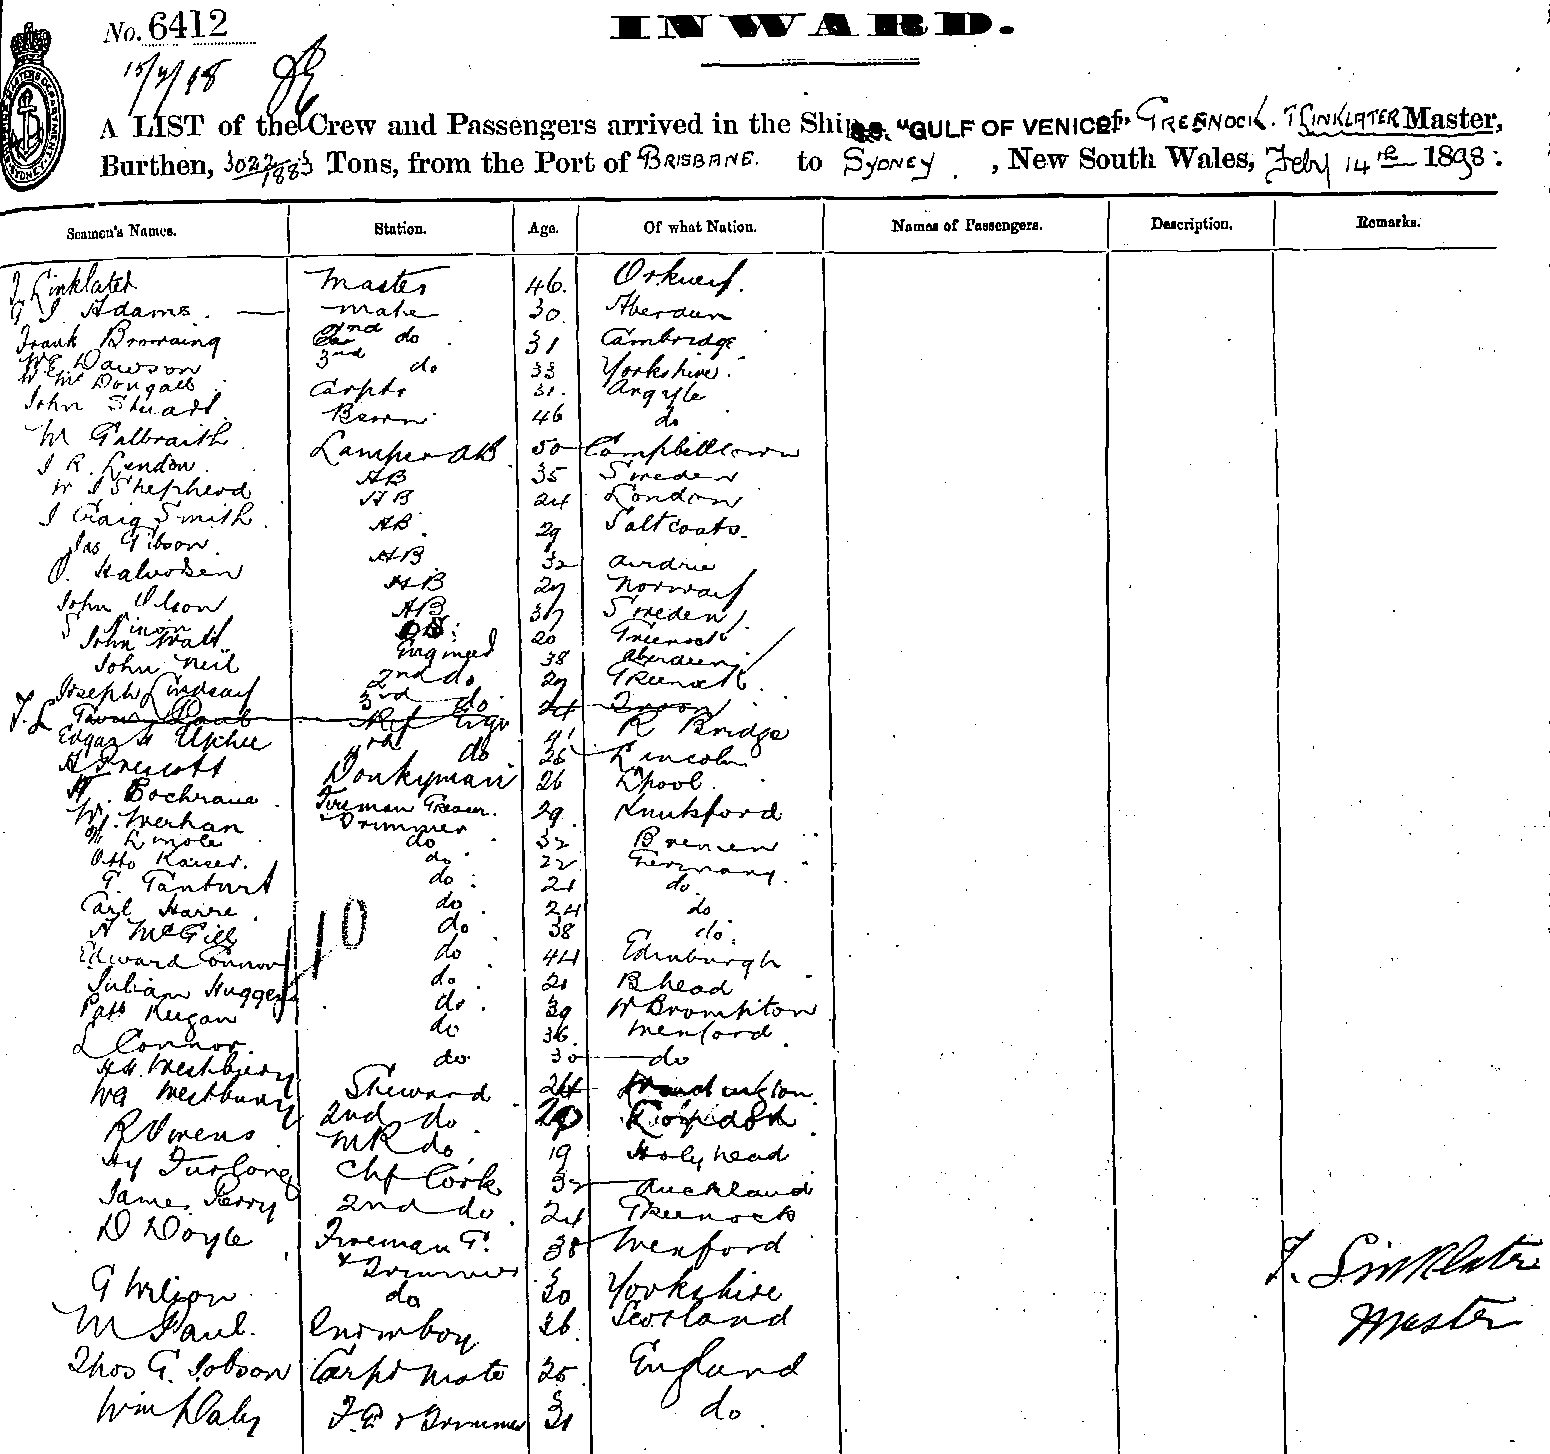 No. 6412
INWARD.
15/2/98
A LIST of the Crew and Passengers arrived in the Ship S.S. "GULF OF VENICE" of GREENOCK. T LINKLATER Master,
Burthen, 3022/1883 Tons, from the Port of BRISBANE. to SYDNEY, New South Wales, Feby 14th 1898.
Seamen's Names. Station. Age. Of what Nation. Names of Passengers. Description. Remarks.
J Linklater Master 46. Orkney.
J Adams. mate 30. Aberdeen
Frank Browning 2nd do 31 Cambridge
WE Dawson 3rd do 33 Yorkshire.
W Mc Dougall Carptr 31. Argyle
John Stuart Bosun 46 do
W Galbraith Lamps & AB 50 Campbelltown
J R. Lendon. AB 35 Sweden
W J Shepherd AB 24 London
J Craig Smith AB. 29 Saltcoats.
Jas Gibson. AB 32 Airdrie
O. Halvorsen AB 27 Norway
John Olson AB 37 Sweden
S Ninian OS. 20 Greenock
John Watt. Engineer 38 Aberdeen
John Neil 2nd do 27 Greenock.
Joseph Lindsay 3rd do 24 Troon
T.L. Paul Ref Engr
Edgar H Uphill 41 R Bridge
A Prescott do 26 Lincoln
Cochrane Donkyman 26 L'pool.
W. Merhan Fireman Greaser & Trimmer 29. Knutsford
do 32 Bremen
Otto Kaiser. do 22 Germany.
do 21 do
Carl Harre. do 24 do
A McGill do 38 do.
Edward Connor do 44 Edinburgh
Julian Huggens do 21 B head
Patk Keegan do 39 W Brompton
L Connor. do 36. Wexford
H. Westbury do 30 do
WG Westbury Steward 24
R Owens 2nd do 29 Croydon
Hy Furlong MR do 19 Holyhead
James Perry Chf Cook 32 Auckland
D Doyle 2nd do. 24 Greenock
Fireman G. & Trimmer 38 Wexford
G Wilson do 30 Yorkshire
M Paul. 26. Scotland
Thos G. Jobson Carpt Mate 25. England
Wm Daly F.G & Trimmer 31 do
10
J. Linklater
Master